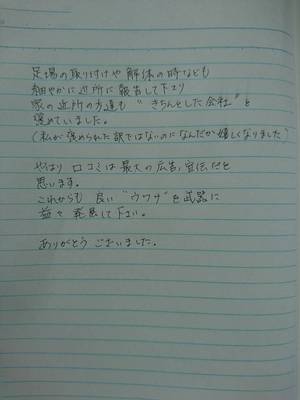 足場の取り付けや解体の時なども
細やかに近所に報告して下さり
家の近所の方達も "きちんとした会社" と
褒めていました。
(私が褒められた訳ではないのになんだか嬉しくなりました)
やはり口コミは最大の広告,宣伝だと
思います。
これからも良い "ウワサ" を武器に
益々発展して下さい。
ありがとうございました。